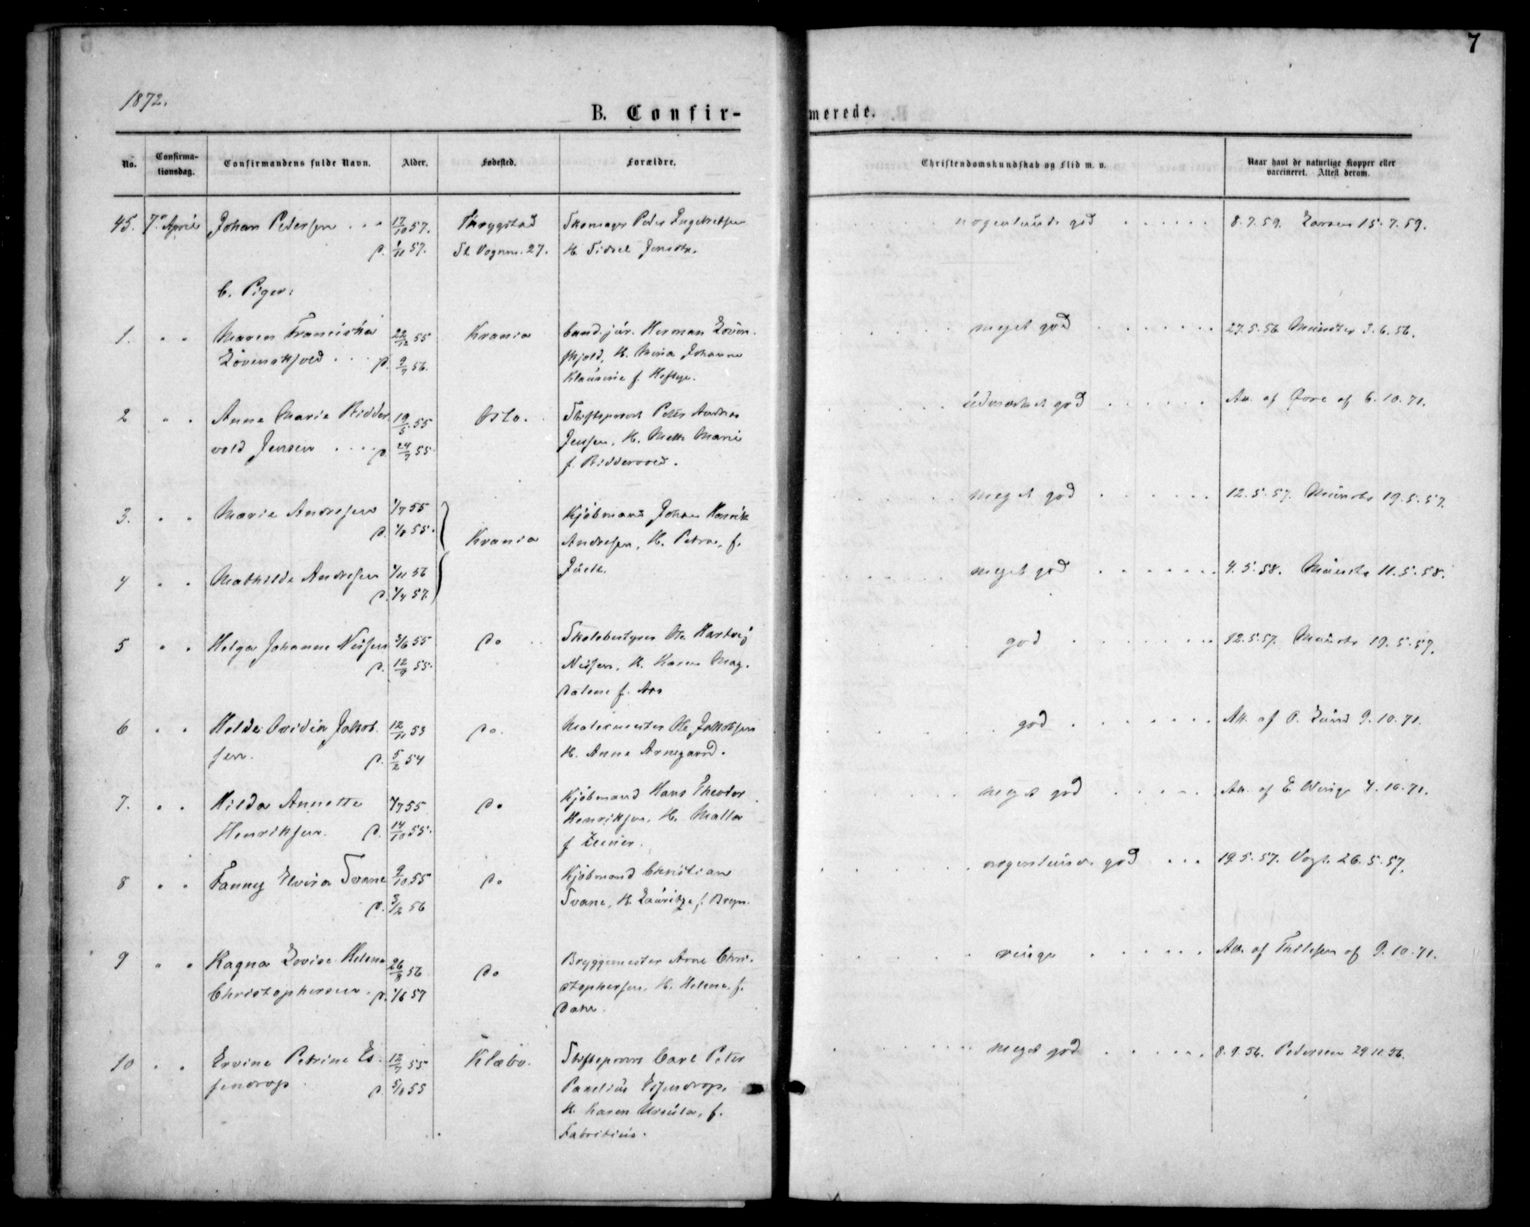 7
1872.
B. Confir-
merede.
No.
Confirma-
tionsdag.
Confirmandens fulde Navn.
Alder.
Fødested.
Forældre.
Christendomskundskab og Flid m. v.
Naar havt de naturlige Kopper eller
vaccineret. Attest derom.
45. 7de April Johan Pedersen 17/10 57. Thrygstad Skomager Peter Engebretsen nogenlunde god 8.7.59. Larsen 15.7.59.
d. 1/11 57. St. Vognm. 27. H. Sidsel Jensdtr.
b. Piger:
1. " " Maren Franciska 22/12 55 Krania Cand. jur. Herman Løven- meget god 27.5.56 Münster 3.6.56.
Løvenskjold d. 9/4 56. skjold, H. Mina Johanne
f. Heftye.
2 " " Anne Marie Ridder 19/5 55 Oslo. Stiftsprovst Peter Andreas udmærket god Att. af 6.10.71.
vold Jensen d. 24/7 55 Jensen, H. Mette Marie
f. Riddervold.
3. " " Marie Andresen 1/7 55 Krania Kjøbmand Johan Henrik meget god 12.5.57. Münster 19.5.57.
d. 55. Andresen, H. Petra, f.
Juell.
4 " " Mathilde Andresen 1/11 56 meget god 4.5.58. Münster 11.5.58.
d. 1/4 57
5 " " Helga Johanne Nissen 3/6 55 do Skolebestyrer Ole Hartvig god 12.5.57. Münster 19.5.57.
d. 12/9 55. Nissen, H. Karen Mag-
dalene f. Aas
6 " " Ovidia Jakob- 12/11 53 do. Malermester Ole Jakobsen god Att. af O. Lund 9.10.71.
sen. d. 5/2 54 H. Anne Arnegaard.
7. " " Hilda Annette 4/7 55 do Kjøbmand Hans Theodor meget god Att. af E 4.10.71.
Henriksen. d. 14/10 55. Henriksen, H. Malla
f.
8 " " Fanny Elvira Svane 9/10 55 do Kjøbmand Christian nogenlunde god 19.5.57. Vogt. 26.5.57.
d. 3/2 56 Svane, H. Lauritze f. Bryn.
9 " " Ragna Lovise Helene 26/8 56 do Bryggemester Arne Chri- ringe Att. af Thilesen af 9.10.71.
Christophersen d. 1/6 57 stophersen, H. Helene f.
Dahr.
10 " " Ervine Petrine Es- 12/7 55 Klæbo. Stiftsprovst Carl Peter meget god 8.9.56. Pedersen 29.11.56.
sendrop. d. 55 Parelius Essendrop,
H. Karen Ursula, f.
Fabritius.